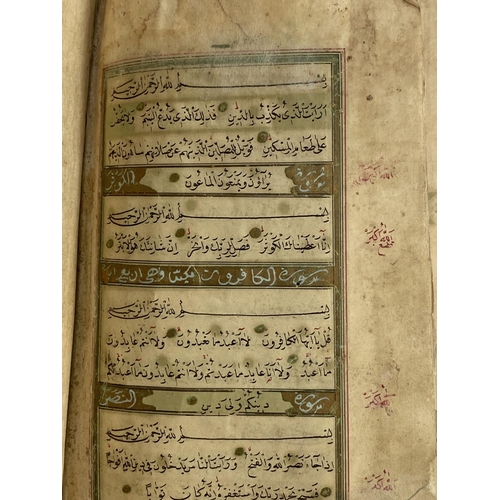 بسم الله الرحمن الرحيم
ارايت الذي يكذب بالدين فذلك الذي يدع اليتيم ولا يحض
على طعام المسكين فويل للمصلين الذين هم عن صلاتهم ساهون الذين هم
سورة يراؤن ويمنعون الماعون الكوثر
الله اكبر
بسم الله الرحمن الرحيم
انا اعطيناك الكوثر فصل لربك وانحر ان شانئك هو الابتر
الله اكبر
سورة الكافرون مكيس وهي
بسم الله الرحمن الرحيم
قل يا ايها الكافرون لا اعبد ما تعبدون ولا انتم عابدون
ما اعبد ولا انا عابد ما عبدتم ولا انتم عابدون ما اعبد لكم
الله اكبر
سورة دينكم ولي دين النصر
بسم الله الرحمن الرحيم
اذا جاء نصر الله والفتح ورايت الناس يدخلون في دين الله افواجا
فسبح بحمد ربك واستغفره انه كان توابا
الله اكبر